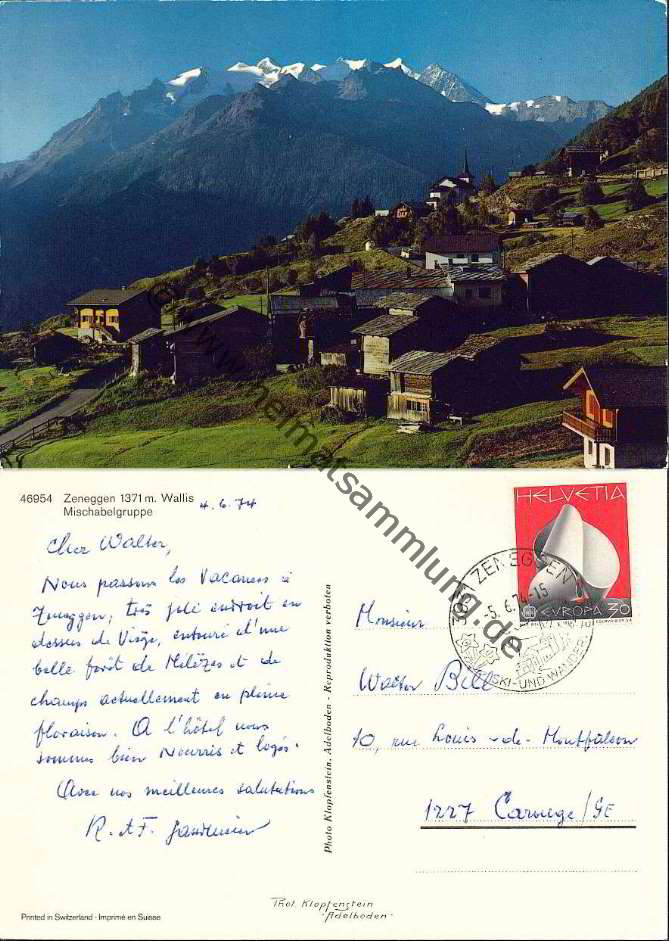 www.heimatsammlung.de
46954 Zeneggen 1371 m. Wallis
Mischabelgruppe
4.6.74
Cher Walter,
Nous passons les vacances à
Zeneggen, très joli endroit en
dessus de Viège, entouré d'une
belle forêt de Mélèzes et de
champs actuellement en pleine
floraison. A l'hôtel nous
sommes bien nourris et logés.
Avec nos meilleures salutations
R. et F.
Photo Klopfenstein, Adelboden - Reproduktion verboten
HELVETIA
EUROPA 30
ZENEGGEN
-5.6.74-15
SKI- UND WANDER
Monsieur
Walter
10, rue Louis-de-Montfalcon
1227 Carouge/GE
Phot. Klopfenstein
"Adelboden"
Printed in Switzerland · Imprimé en Suisse